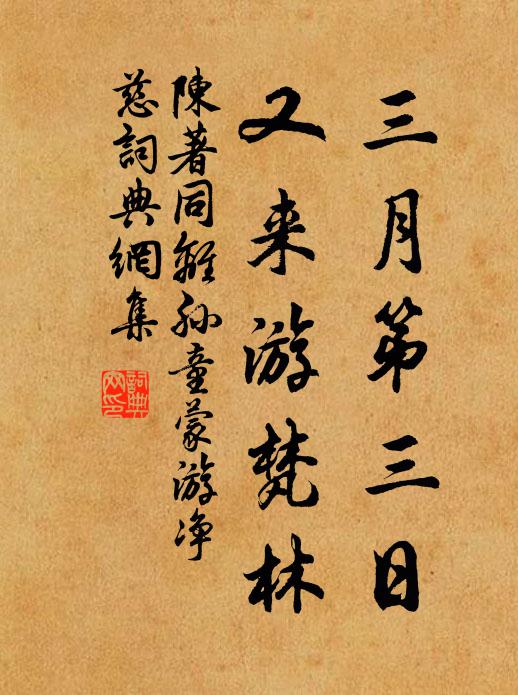 三月第三日
又来游梵林
陳著同雜孙童蒙游净
慈詞典網集
詞典
网印